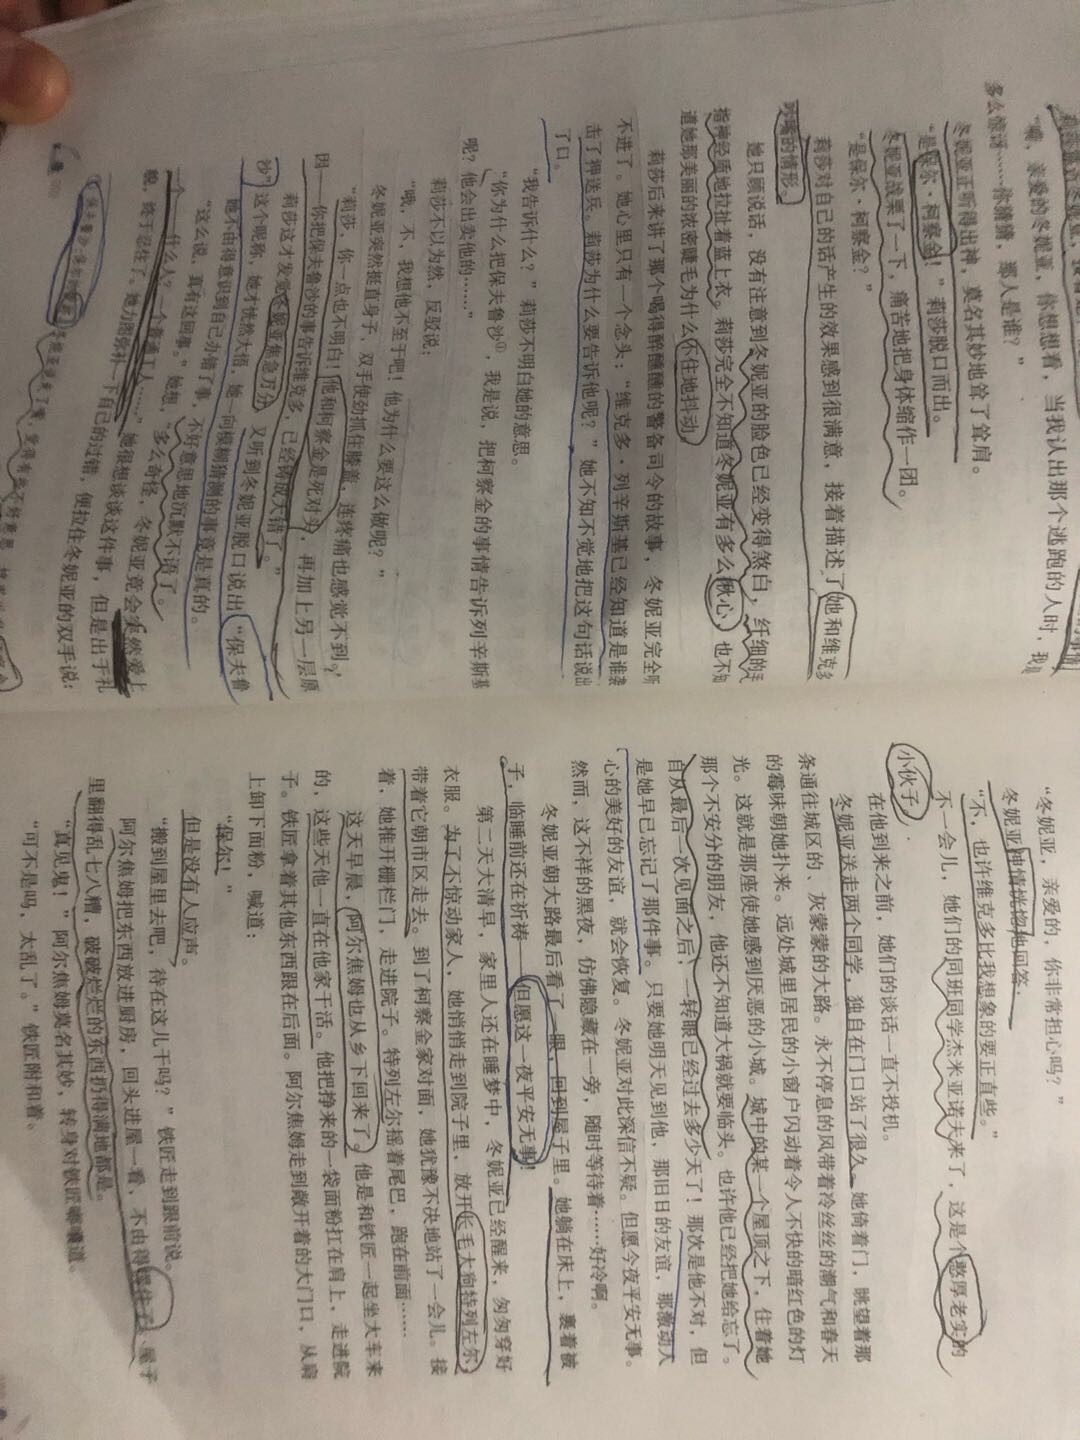 “哦，亲爱的冬妮亚，你想想看，当我认出那个逃跑的人时，我
多么惊讶……你猜猜，那人是谁？”
冬妮亚正听得出神，莫名其妙地耸了耸肩。
“是保尔·柯察金！”莉莎脱口而出。
冬妮亚战栗了一下，痛苦地把身体缩作一团。
“是保尔·柯察金？”
莉莎对自己的话产生的效果感到很满意，接着描述了她和维克多
吵嘴的情形。
她只顾说话，没有注意到冬妮亚的脸色已经变得煞白，纤细的手
指神经质地拉扯着蓝上衣。莉莎完全不知道冬妮亚有多么揪心，也不知
道她那美丽的浓密睫毛为什么不住地抖动。
莉莎后来讲了那个喝得醉醺醺的警备司令的故事，冬妮亚完全听
不进了。她心里只有一个念头：“维克多·列辛斯基已经知道是谁袭
击了押送兵。莉莎为什么要告诉他呢？”她不知不觉地把这句话说出
了口。
“我告诉什么？”莉莎不明白她的意思。
“你为什么把保夫鲁沙①，我是说，把柯察金的事情告诉列辛斯基
呢？他会出卖他的……”
莉莎不以为然，反驳说：
“哦，不，我想他不至于吧！他为什么要这么做呢？”
冬妮亚突然挺直身子，双手使劲抓住膝盖，连疼痛也感觉不到：
“莉莎，你一点也不明白！他和柯察金是死对头，再加上另一层原
因——你把保夫鲁沙的事告诉维克多，已经铸成大错了。”
莉莎这才发觉冬妮亚焦急万分，又听到冬妮亚脱口说出“保夫鲁
沙”这个昵称，她才恍然大悟，她一向模糊猜测的事竟是真的。
她不由得意识到自己办错了事，不好意思地沉默不语了。
“这么说，真有这回事。”她想，“多么奇怪，冬妮亚竟会突然爱上
一个——什么人？一个普通工人……”她很想谈谈这件事，但是出于礼
貌，终于忍住了。她力图弥补一下自己的过错，便拉住冬妮亚的双手说：
“冬妮亚，亲爱的，你非常担心吗？”
冬妮亚神情恍惚地回答：
“不，也许维克多比我想象的要正直些。”
不一会儿，她们的同班同学杰米亚诺夫来了，这是个憨厚老实的
小伙子。
在他到来之前，她们的谈话一直不投机。
冬妮亚送走两个同学，独自在门口站了很久。她倚着门，眺望着那
条通往城区的、灰蒙蒙的大路。永不停息的风带着冷丝丝的潮气和春天
的霉味朝她扑来。远处城里居民的小窗户闪动着令人不快的暗红色的灯
光。这就是那座使她感到厌恶的小城。城中的某一个屋顶之下，住着她
那个不安分的朋友，他还不知道大祸就要临头。也许他已经把她给忘了。
自从最后一次见面之后，一转眼已经过去多少天了！那次是他不对，但
是她早已忘记了那件事。只要她明天见到他，那旧日的友谊，那激动人
心的美好的友谊，就会恢复。冬妮亚对此深信不疑。但愿今夜平安无事。
然而，这不祥的黑夜，仿佛隐藏在一旁，随时等待着……好冷啊。
冬妮亚朝大路最后看了一眼，回到屋子里。她躺在床上，裹着被
子，临睡前还在祈祷——但愿这一夜平安无事！
第二天大清早，家里人还在睡梦中，冬妮亚已经醒来，匆匆穿好
衣服。为了不惊动家人，她悄悄走到院子里，放开长毛大狗特列左尔，
带着它朝市区走去。到了柯察金家对面，她犹豫不决地站了一会儿。接
着，她推开栅栏门，走进院子。特列左尔摇着尾巴，跑在前面……
这天早晨，阿尔焦姆也从乡下回来了。他是和铁匠一起坐大车来
的，这些天他一直在他家干活。他把挣来的一袋面粉扛在肩上，走进院
子。铁匠拿着其他东西跟在后面。阿尔焦姆走到敞开着的大门口，从肩
上卸下面粉，喊道：
“保尔！”
但是没有人应声。
“搬到屋里去吧，待在这儿干吗？”铁匠走到跟前说。
阿尔焦姆把东西放进厨房，回头进屋一看，不由得愣住了，屋子
里翻得乱七八糟，破破烂烂的东西扔得满地都是。
“真见鬼！”阿尔焦姆莫名其妙，转身对铁匠嘟囔道。
“可不是吗，太乱了。”铁匠附和着。